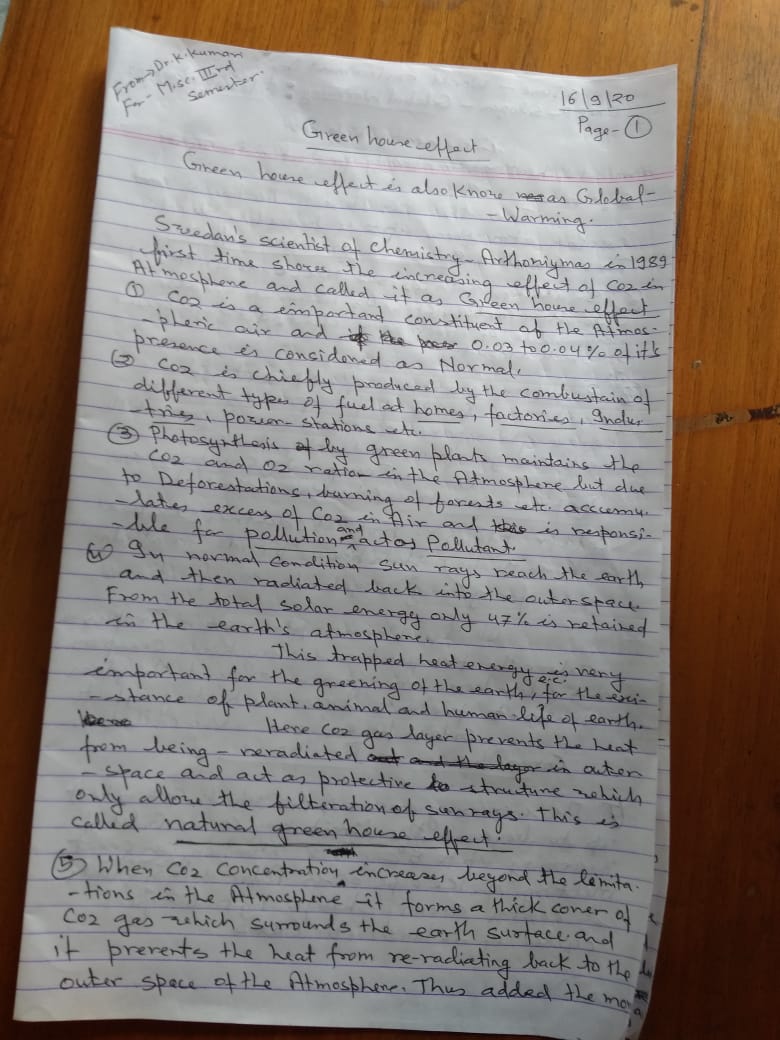 From → Dr. K. Kumari
For - M.sc. IIIrd
Semester.
16/9/20
Page - ①
Green house effect
Green house effect is also Know as Global-
- Warming.
Sweedan's scientist of chemistry - Arthoniymas in 1989
first time shows the increasing effect of CO2 in
Atmosphere and called it as Green house effect
① CO2 is a important constituent of the Atmos-
- pheric air and 0.03 to 0.04% of it's
presence is considered as Normal.
② CO2 is chiefly produced by the combustain of
different types of fuel at homes, factories, Indus
- tries, power- stations etc.
③ Photosynthesis by green plants maintains the
CO2 and O2 ration in the Atmosphere but due
to Deforestations, burning of forests etc. accumu-
- lates excess of CO2 in Air and is responsi-
- ble for pollution and act as Pollutant.
④ In normal Condition sun rays reach the earth,
and then radiated back into the outer space.
From the total solar energy only 47% is retained
in the earth's atmosphere.
This trapped heat energy is very
important for the greening of the earth, for the exi-
- stance of plant, animal and human life of earth.
Here CO2 gas layer prevents the heat
from being - reradiated in outer
- space and act as protective structure which
only allow the filteration of sun rays. This is
called natural green house effect.
⑤ When CO2 Concentration increases beyond the limita-
- tions in the Atmosphere it forms a thick cover of
CO2 gas which surrounds the earth surface and
it prevents the heat from re-radiating back to the
outer space of the Atmosphere. Thus added the